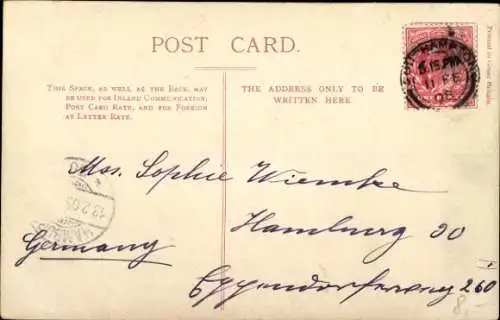 POST CARD.
THIS SPACE, AS WELL AS THE BACK, MAY
BE USED FOR INLAND COMMUNICATION,
POST CARD RATE, AND FOR FOREIGN
AT LETTER RATE.
THE ADDRESS ONLY TO BE
WRITTEN HERE
Printed in Great Britain.
6.15 PM
11 FE
05
12.2.05
Mss. Sophie Wiemke
Hamburg 20
Germany
Eppendorferweg 260
8,-